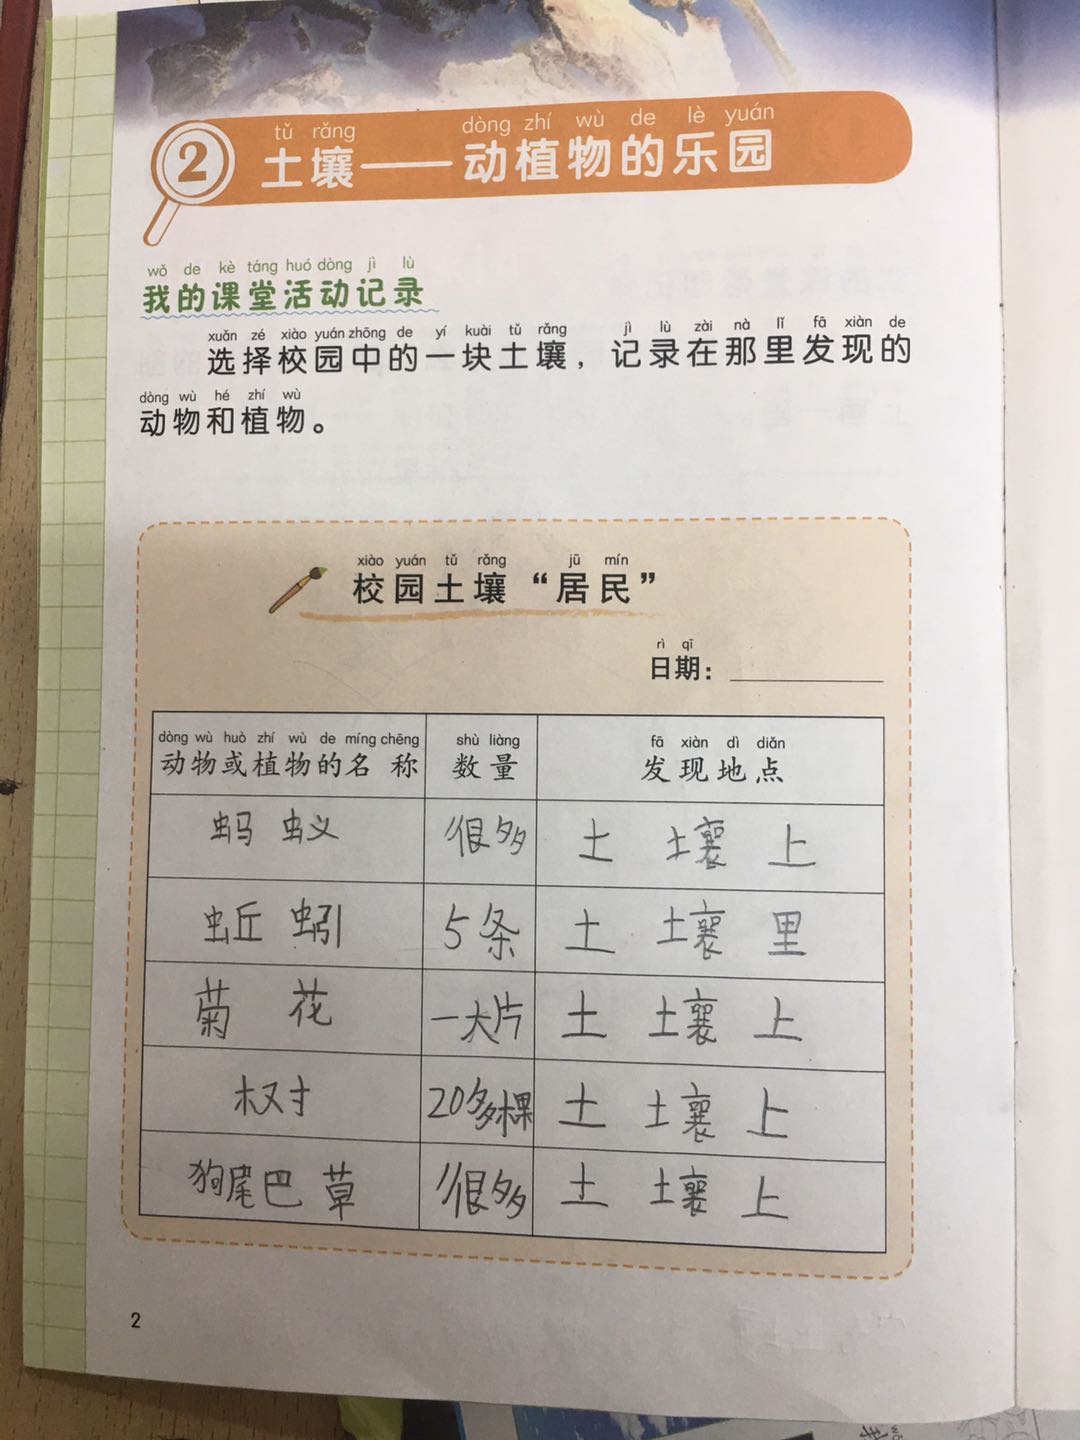 tǔ rǎng dòng zhí wù de lè yuán
2 土壤——动植物的乐园
wǒ de kè táng huó dòng jì lù
我的课堂活动记录
xuǎn zé xiào yuán zhōng de yí kuài tǔ rǎng jì lù zài nà lǐ fā xiàn de
选择校园中的一块土壤，记录在那里发现的
dòng wù hé zhí wù
动物和植物。
xiào yuán tǔ rǎng jū mín
校园土壤“居民”
rì qī
日期：
dòng wù huò zhí wù de míng chēng shù liàng fā xiàn dì diǎn
动物或植物的名称 数量 发现地点
蚂蚁 很多 土土壤上
蚯蚓 5条 土土壤里
菊花 一大片 土土壤上
树 20多棵 土土壤上
狗尾巴草 很多 土土壤上
2